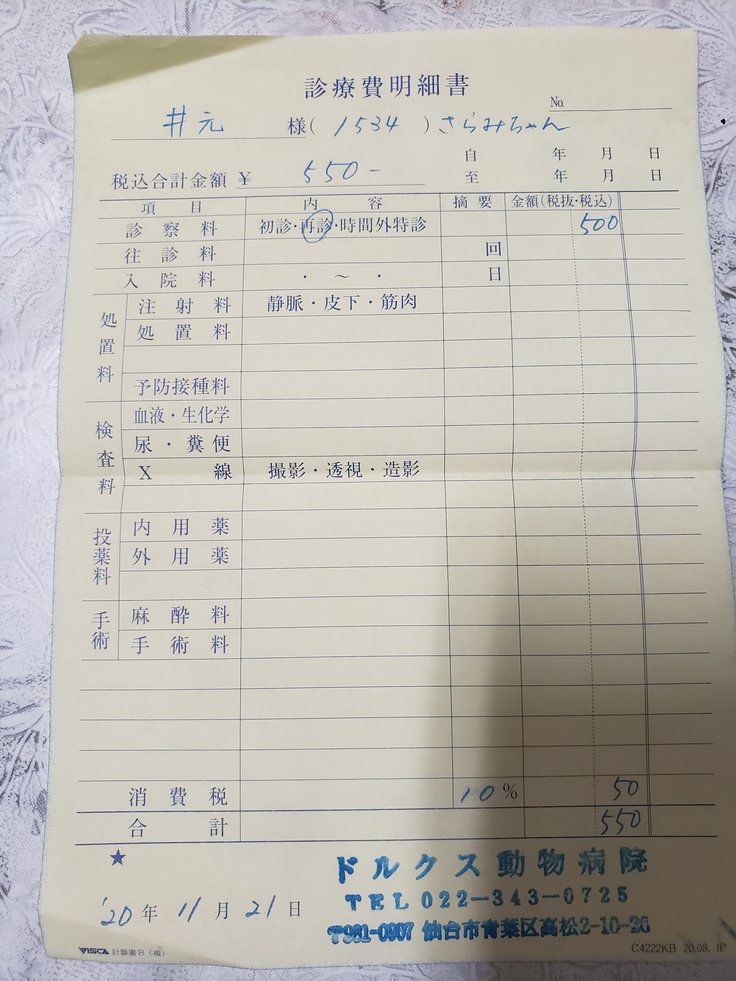 診療費明細書
No.
井元 様(1534)さらみちゃん
自 年 月 日
税込合計金額 ¥ 550-
至 年 月 日
項目 内容 摘要 金額(税抜・税込)
診察料 初診・再診・時間外特診 500
往診料 回
入院料 ・ 〜 ・ 日
処置料
注射料 静脈・皮下・筋肉
処置料
予防接種料
検査料
血液・生化学
尿・糞便
X線 撮影・透視・造影
投薬料
内用薬
外用薬
手術
麻酔料
手術料
消費税 10% 50
合計 550
★
ドルクス動物病院
TEL022-343-0725
〒981-0907 仙台市青葉区高松2-10-26
'20年 11月 21日
VISCA 計算書B(複) C4222KB 20.08. IP